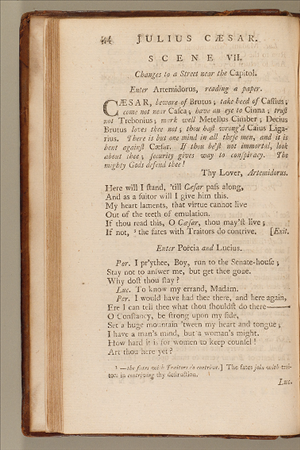 44 JULIUS CÆSAR.
SCENE VII.
Changes to a Street near the Capitol.
Enter Artemidorus, reading a paper.
CÆSAR, beware of Brutus; take heed of Cassius;
come not near Casca; have an eye to Cinna; trust
not Trebonius; mark well Metellus Cimber; Decius
Brutus loves thee not; thou hast wrong'd Caius Liga-
rius. There is but one mind in all these men, and it is
bent against Cæsar. If thou be'st not immortal, look
about thee; security gives way to conspiracy. The
mighty Gods defend thee!
Thy Lover, Artemidorus.
Here will I stand, 'till Cæsar pass along,
And as a suitor will I give him this.
My heart laments, that virtue cannot live
Out of the teeth of emulation.
If thou read this, O Cæsar, thou may'st live;
If not, ³ the fates with Traitors do contrive. [Exit.
Enter Porcia and Lucius.
Por. I pr'ythee, Boy, run to the Senate-house;
Stay not to answer me, but get thee gone.
Why dost thou stay?
Luc. To know my errand, Madam.
Por. I would have had thee there, and here again,
Ere I can tell thee what thou shouldst do there——
O Constancy, be strong upon my side,
Set a huge mountain 'tween my heart and tongue;
I have a man's mind, but a woman's might.
How hard it is for women to keep counsel!
Art thou here yet?
³ —the fates with Traitors do contrive.] The fates join with trai-
tors in contriving thy destruction.
Luc.